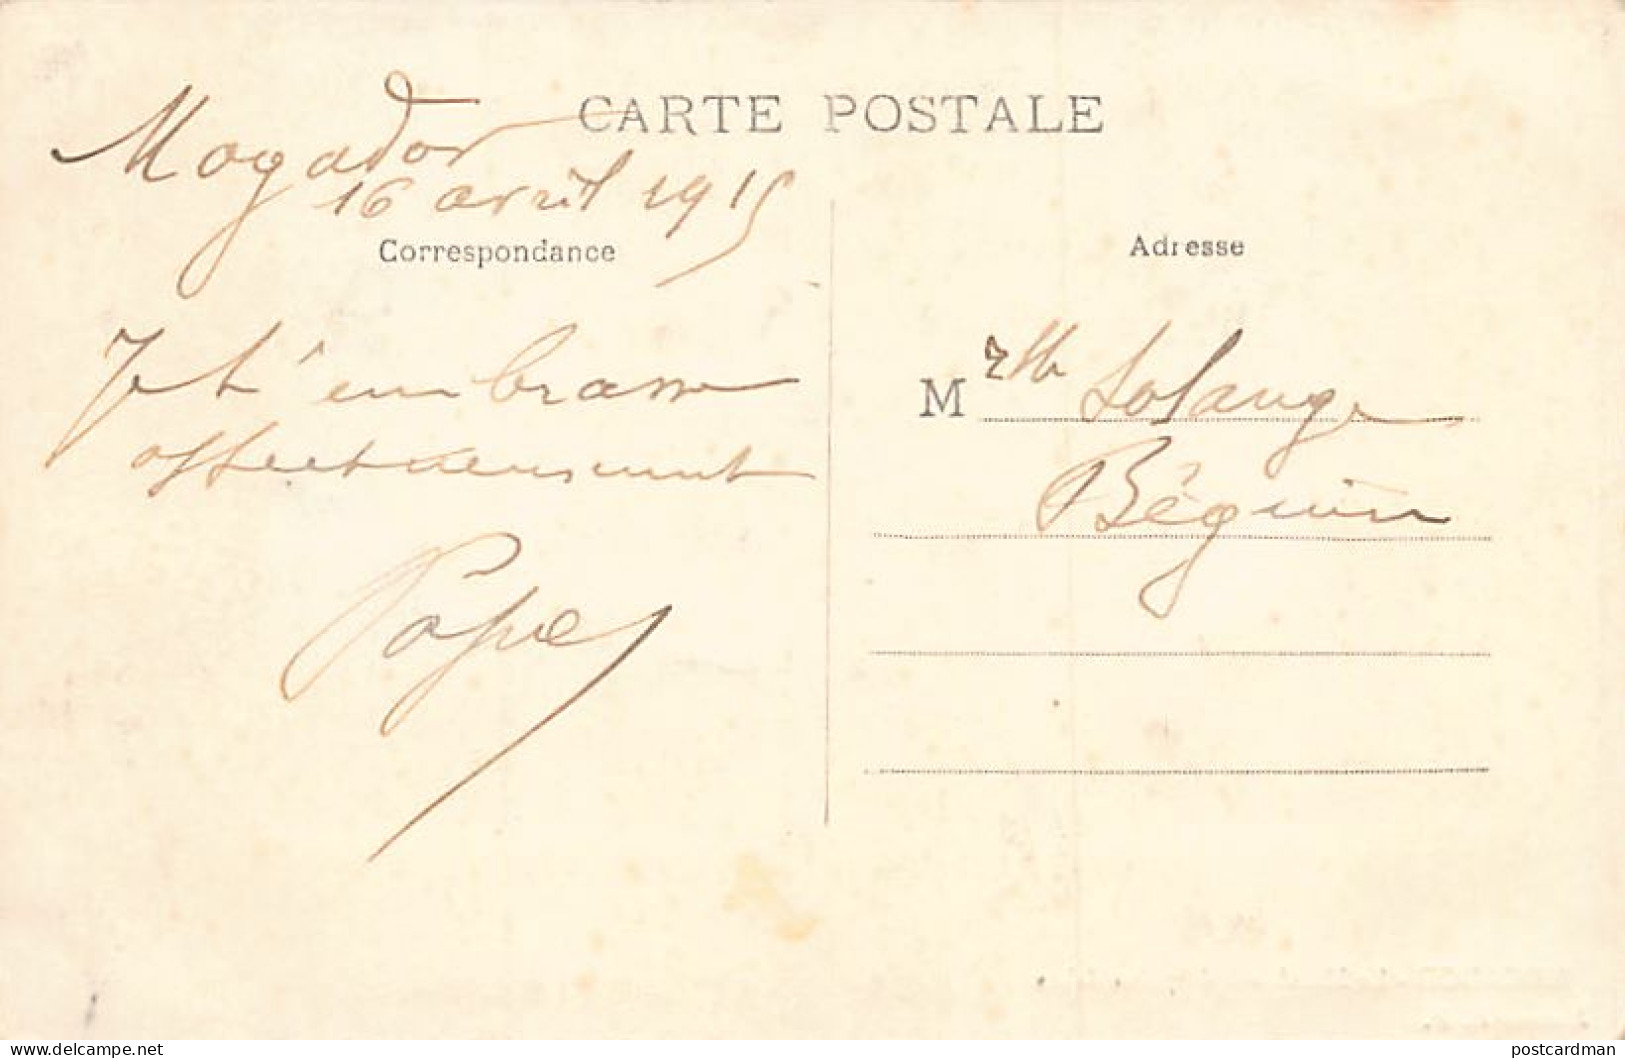 CARTE POSTALE
Mogador
16 avril 1915
Correspondance
Je t'embrasse
affectueusement
Adresse
M elle Solange
Béguin
www.delcampe.net
postcardman